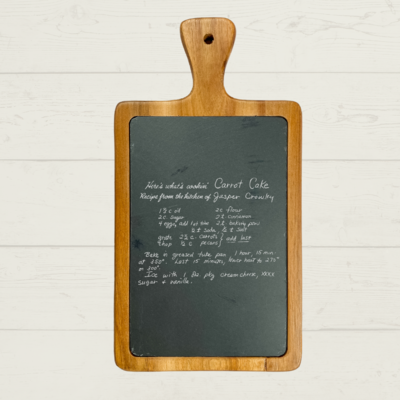 Here's what's cookin' Carrot Cake
Recipe from the kitchen of Jasper Crowley
1½ c oil 2c flour
2c sugar 2t cinnamon
4 eggs, add 1 at time 2t baking
½t soda, ½t salt
grate 2½ c carrots
chop ½ c pecans add last
Bake in greased tube pan 1 hour, 15 min
at 250°. Last 15 minutes, heat to 275°
or 300°.
Ice with 1 8oz. pkg cream cheese, xxxx
sugar & vanilla.